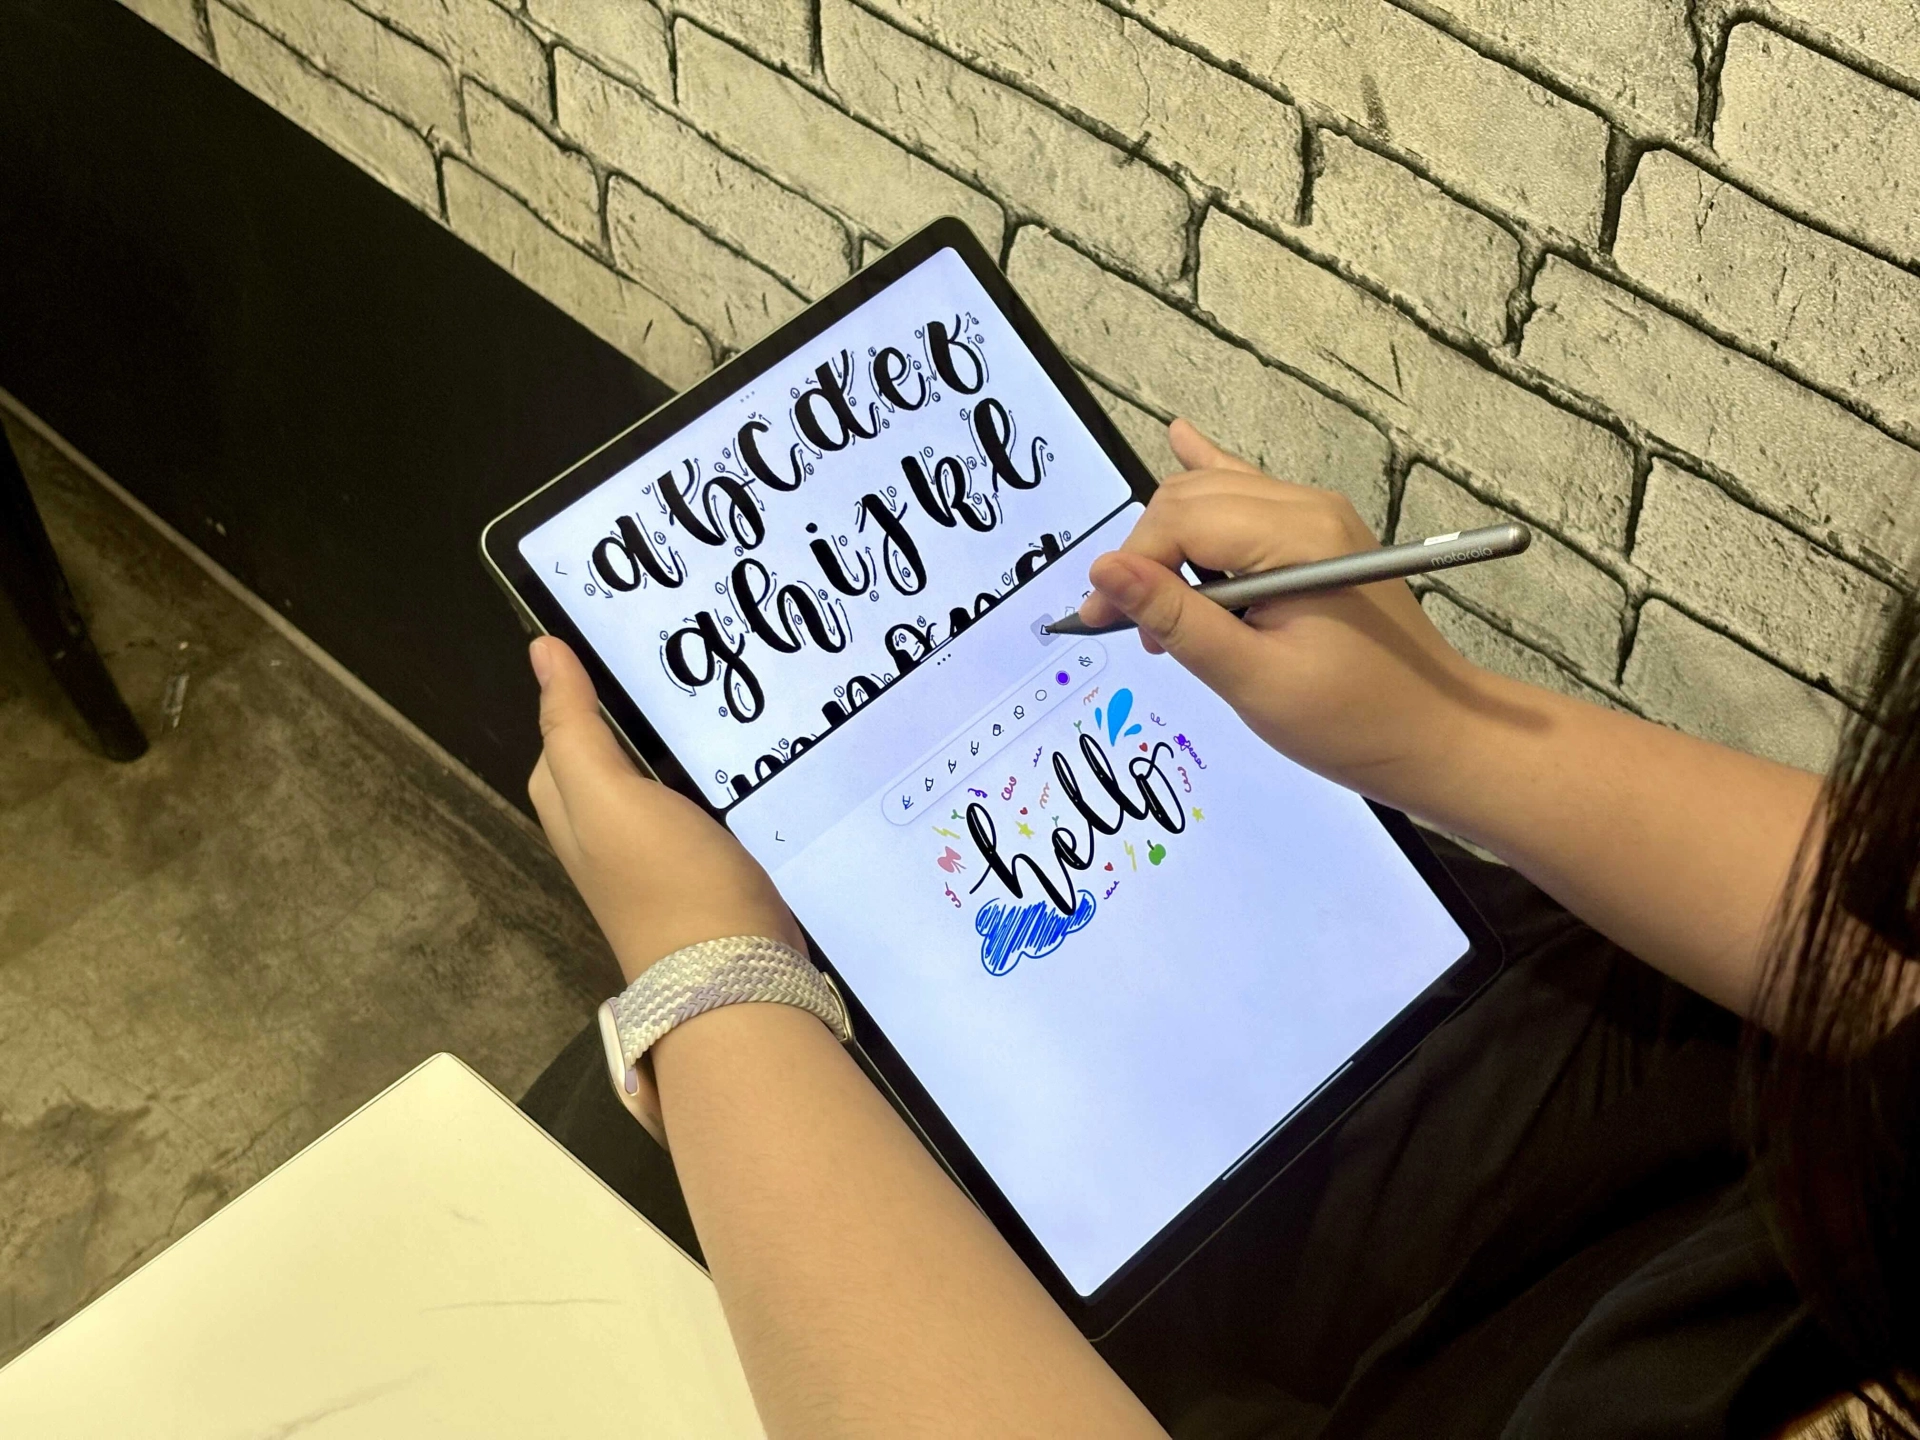 a b c d e f
g h i j k l
m n o p q
hello
motorola